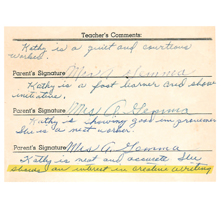 Teacher's Comments:
Kathy is a quiet and courteous
worker.
Parent's Signature Mrs A Gemma
Kathy is a fast learner and shows
initiative.
Parent's Signature Mrs A. Gemma
Kathy is showing good improvement
She is a neat worker.
Parent's Signature Mrs A Gemma
Kathy is neat and accurate She
shows an interest in creative writing